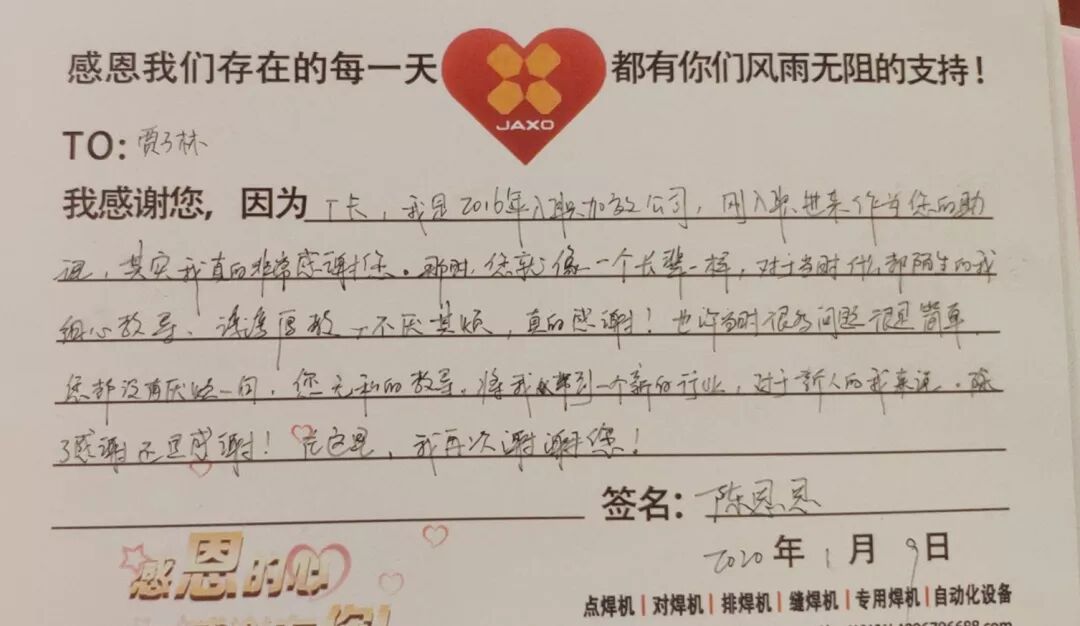 感恩我们存在的每一天 JAXO 都有你们风雨无阻的支持！
TO：贾子林
我感谢您，因为丁卡，我是2016年入职加效公司，刚入职进来作为您的助
理，其实我真的非常感谢您。那时，您就像一个长辈一样，对于当时什么都陌生的我
细心教导、谆谆厚教，不厌其烦，真的感谢！也许当时很多问题很是简单
您都没有厌烦一问，您无私的教导。将我带到一个新的行业，对于新人的我来说。除
了感谢还是感谢！在这里，我再次谢谢您！
签名：陈恩恩
2020年1月9日
感恩的心
点焊机|对焊机|排焊机|缝焊机|专用焊机|自动化设备